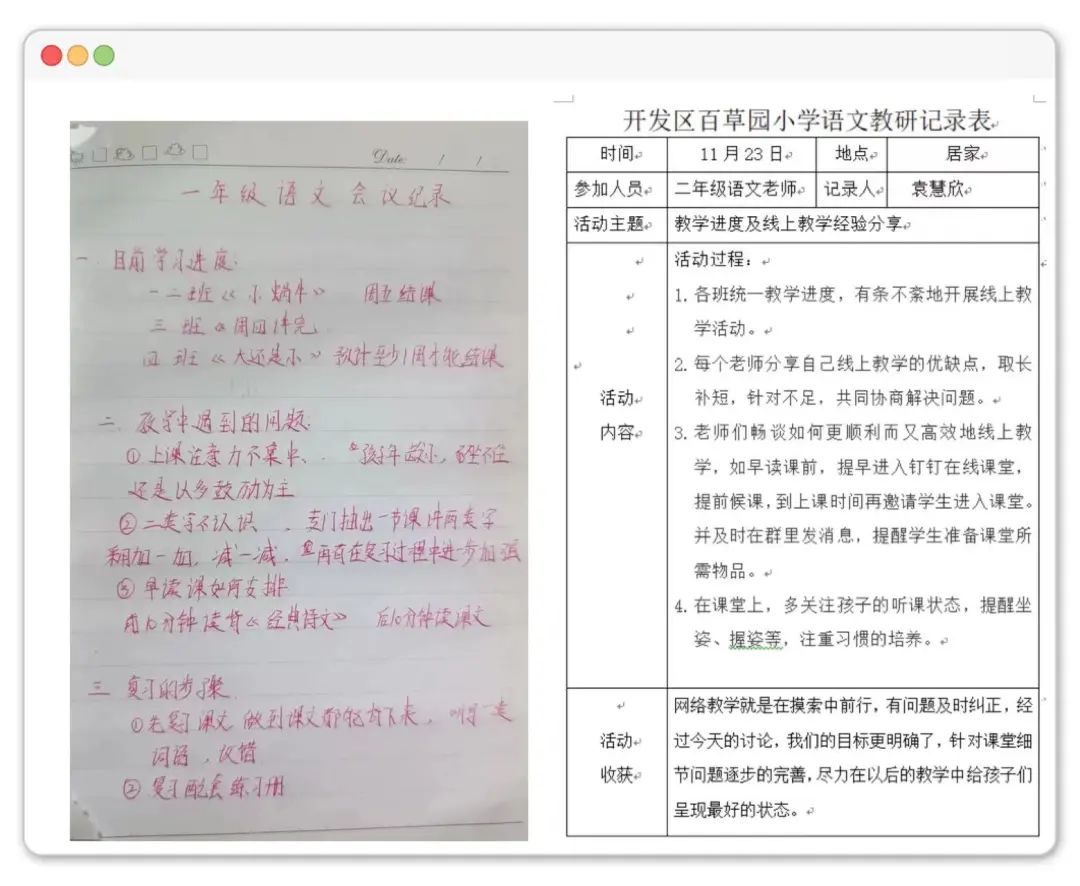 Date: / /
一年级语文会议纪录
一. 目前学习进度:
一二班《小蜗牛》 周五结课
三 班 周四讲完
四 班《大还是小》预计至少1周才能结课
二. 教学中遇到的问题:
①上课注意力不集中、 孩子年龄小, 坐不住
还是以多鼓励为主
②二类字不认识 , 专门抽出一节课讲两类字
利用加一加, 减一减, 再有在复习过程中进一步加强
③早读课如何安排
前10分钟读背《经典诗文》 后10分钟读课文
三 复习的步骤
①先复习课文 做到课文都能背下来,
词语, 仪错
②复习配套练习册
开发区百草园小学语文教研记录表
时间 11月23日 地点 居家
参加人员 二年级语文老师 记录人 袁慧欣
活动主题 教学进度及线上教学经验分享
活动内容
活动过程：
1. 各班统一教学进度，有条不紊地开展线上教
学活动。
2. 每个老师分享自己线上教学的优缺点，取长
补短，针对不足，共同协商解决问题。
3. 老师们畅谈如何更顺利而又高效地线上教
学，如早读课前，提早进入钉钉在线课堂，
提前候课，到上课时间再邀请学生进入课堂。
并及时在群里发消息，提醒学生准备课堂所
需物品。
4. 在课堂上，多关注孩子的听课状态，提醒坐
姿、握姿等，注重习惯的培养。
活动收获
网络教学就是在摸索中前行，有问题及时纠正，经
过今天的讨论，我们的目标更明确了，针对课堂细
节问题逐步的完善，尽力在以后的教学中给孩子们
呈现最好的状态。